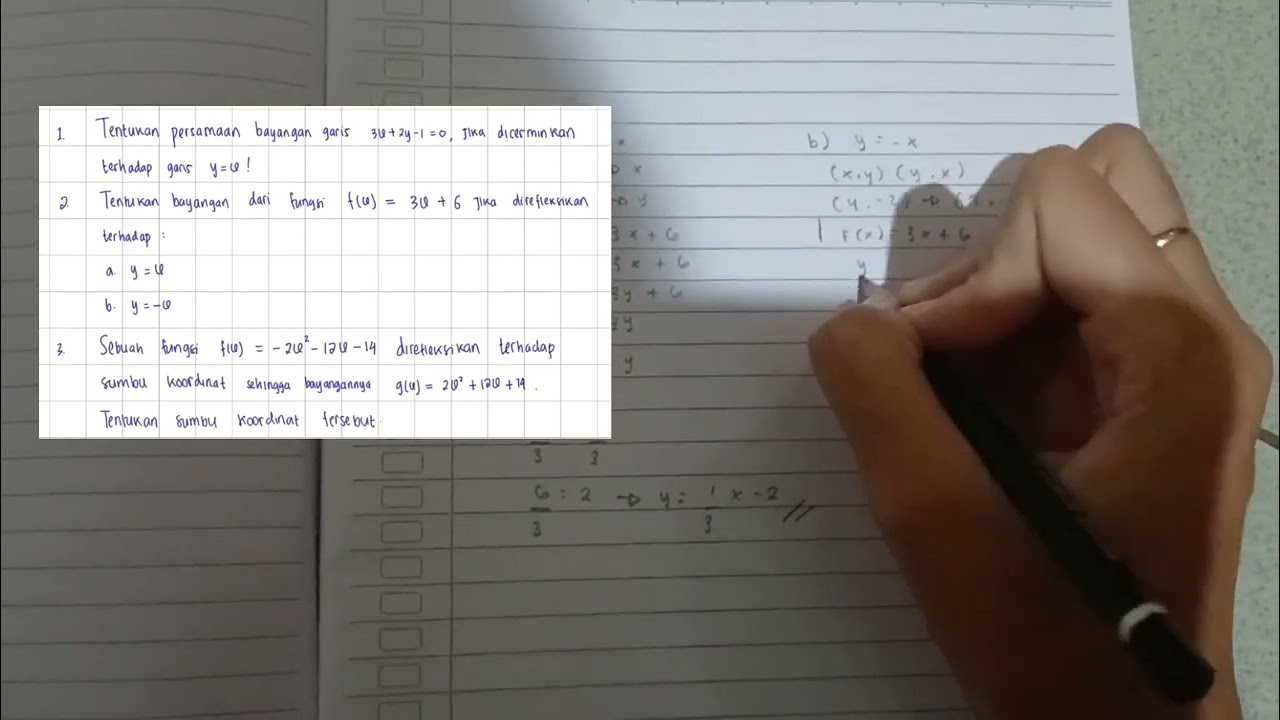 1. Tentukan persamaan bayangan garis 3x+2y-1=0, jika dicerminkan
terhadap garis y=x!
2. Tentukan bayangan dari fungsi f(x) = 3x + 6 jika direfleksikan
terhadap :
a. y=x
b. y=-x
3. Sebuah fungsi f(x) = -2x²-12x-14 direfleksikan terhadap
sumbu koordinat sehingga bayangannya g(x) = 2x²+12x+14.
Tentukan sumbu koordinat tersebut.
x
x
y
3x + 6
3x + 6
3y + 6
3y
y
3 3
6/3 = 2 → y = 1/3 x - 2 //
b) y = -x
(x,y) (y,x)
(y,-
f(x) = 3x + 6
y